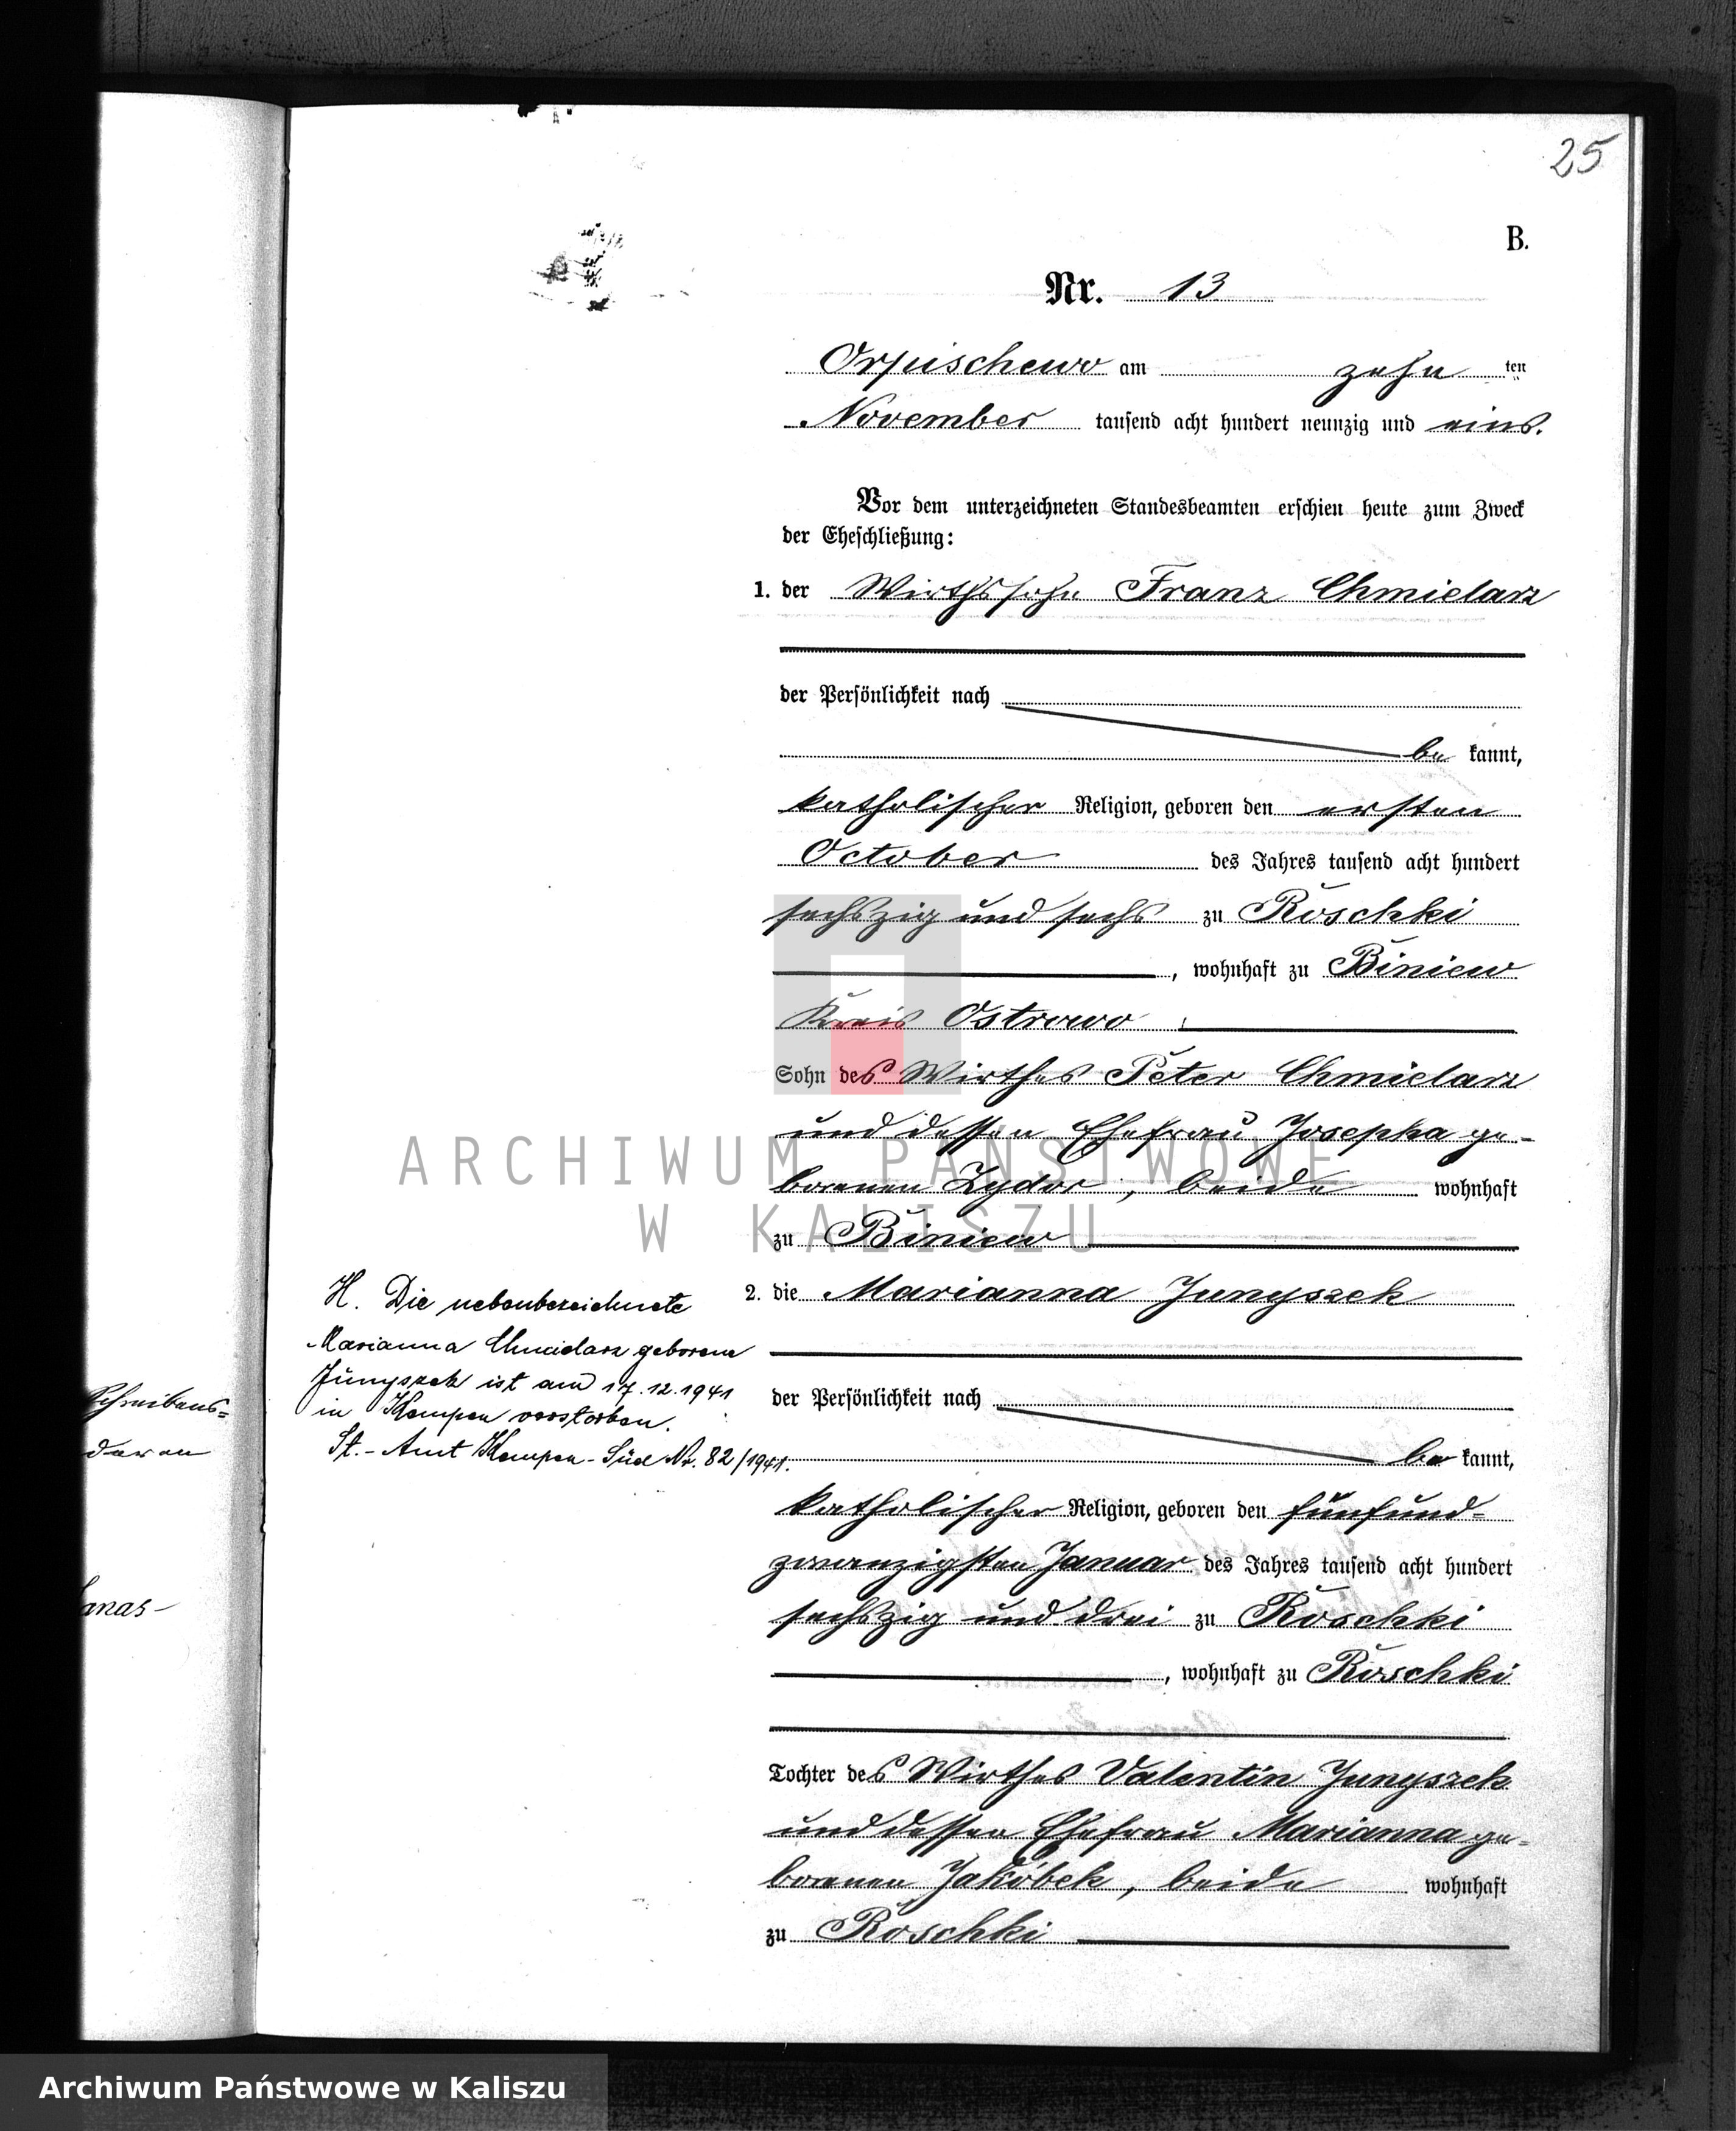 25
B.
Nr. 13
Orpischewo am zehn ten
November tausend acht hundert neunzig und eins.
Vor dem unterzeichneten Standesbeamten erschien heute zum Zweck
der Eheschließung:
1. der Wirthssohn Franz Chmielarz
der Persönlichkeit nach
be kannt,
katholischer Religion, geboren den ersten
October des Jahres tausend acht hundert
sechszig und sechs zu Roschki
, wohnhaft zu Biniew
Kreis Ostrowo
Sohn des Wirthes Peter Chmielarz
und dessen Ehefrau Josepha ge-
borenen Zydor, beide wohnhaft
zu Biniew
2. die Marianna Junyszek
der Persönlichkeit nach
be kannt,
katholischer Religion, geboren den fünfund-
zwanzigsten Januar des Jahres tausend acht hundert
sechszig und drei zu Roschki
, wohnhaft zu Roschki
Tochter des Wirthes Valentin Junyszek
und dessen Ehefrau Marianna ge-
borenen Jakóbek, beide wohnhaft
zu Roschki
H. Die nebenbezeichnete
Marianna Chmielarz geborene
Junyszek ist am 17.12.1941
in Kempen verstorben.
St.-Amt Kempen-Süd Nr. 82/1941.
Schreibens-
daran
anas-
ARCHIWUM PAŃSTWOWE
W KALISZU
Archiwum Państwowe w Kaliszu